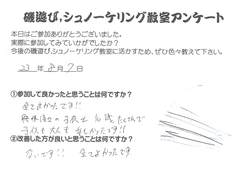 磯遊び、シュノーケリング教室アンケート
本日はご参加ありがとうございました。
実際に参加してみていかがでしたか？
今後の磯遊び、シュノーケリング教室に活かすため、ぜひ色々教えて下さい。
23年8月7日
①参加して良かったと思うことは何ですか？
全てよかったです!!
子供も大人も楽しかったです!!
②改善した方が良いと思うことは何ですか？
ないです!! 全てよかったです